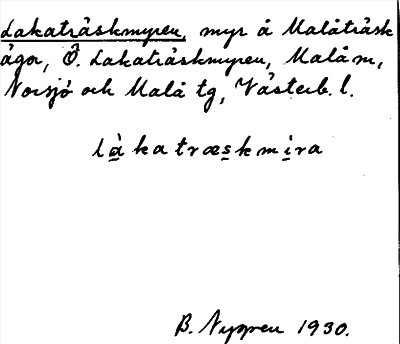 Lakaträskmyren, myr å Malåträsk
ägor, Ö. Lakaträskmyren, Malå m,
Norsjö och Malå tg, Västerb. l.
làkatræskmira
B. Nygren 1930.